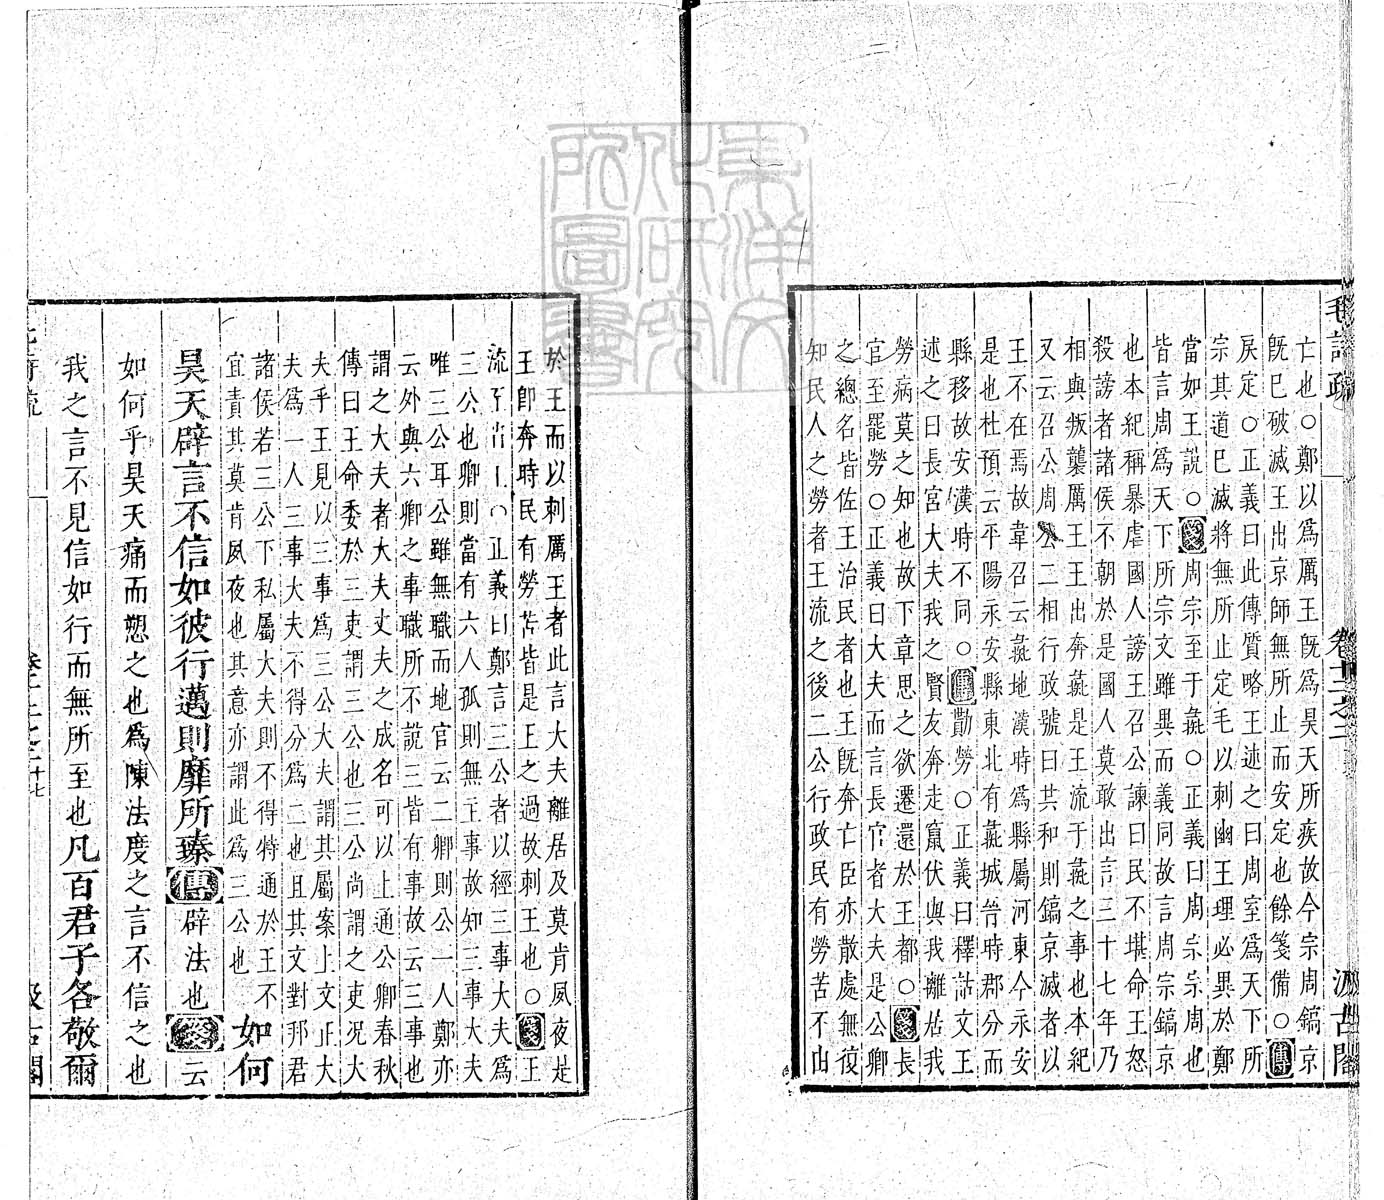 毛詩疏 卷十二之二 汲古閣
亡也○鄭以為厲王旣為昊天所疾故今宗周鎬京
旣已破滅王出京師無所止而安定也餘箋備○傳
戾定○正義曰此傳質略王述之曰周室為天下所
宗其道已滅將無所止定毛以刺幽王理必異於鄭
當如王說○箋周宗至于彘○正義曰周宗宗周也
皆言周為天下所宗文雖異而義同故言周宗鎬京
也本紀稱暴虐國人謗王召公諫曰民不堪命王怒
殺謗者諸侯不朝於是國人莫敢出言三十七年乃
相與叛襲厲王王出奔彘是王流于彘之事也本紀
又云召公周公二相行政號曰共和則鎬京滅者以
王不在焉故韋召云彘地漢時為縣屬河東今永安
是也杜預云平陽永安縣東北有彘城晉時郡分而
縣移故安漢時不同○傳勩勞○正義曰釋詁文王
述之曰長官大夫我之賢友奔走竄伏與我離居我
勞病莫之知也故下章思之欲遷還於王都○箋長
官至罷勞○正義曰大夫而言長官者大夫是公卿
之總名皆佐王治民者也王旣奔亡臣亦散處無復
知民人之勞者王流之後二公行政民有勞苦不由
於王而以刺厲王者此言大夫離居及莫肯夙夜是
王卽奔時民有勞苦皆是王之過故刺王也○箋王
流至○正義曰鄭言三公者以經三事大夫為
三公也卿則當有六人孤則無主事故知三事大夫
唯三公耳公雖無職而地官云二卿則公一人鄭亦
云外與六卿之事職所不說三皆有事故云三事也
謂之大夫者大夫丈夫之成名可以上通公卿春秋
傳曰王命委於三吏謂三公也三公尚謂之吏况大
夫乎王見以三事為三公大夫謂其屬案上文正大
夫為一人三事大夫不得分為二也且其文對邦君
諸侯若三公下私屬大夫則不得特通於王不
宜責其莫肯夙夜也其意亦謂此為三公也 如何
昊天辟言不信如彼行邁則靡所臻傳辟法也箋云
如何乎昊天痛而愬之也為陳法度之言不信之也
我之言不見信如行而無所至也凡百君子各敬爾
東洋文化研究所圖書